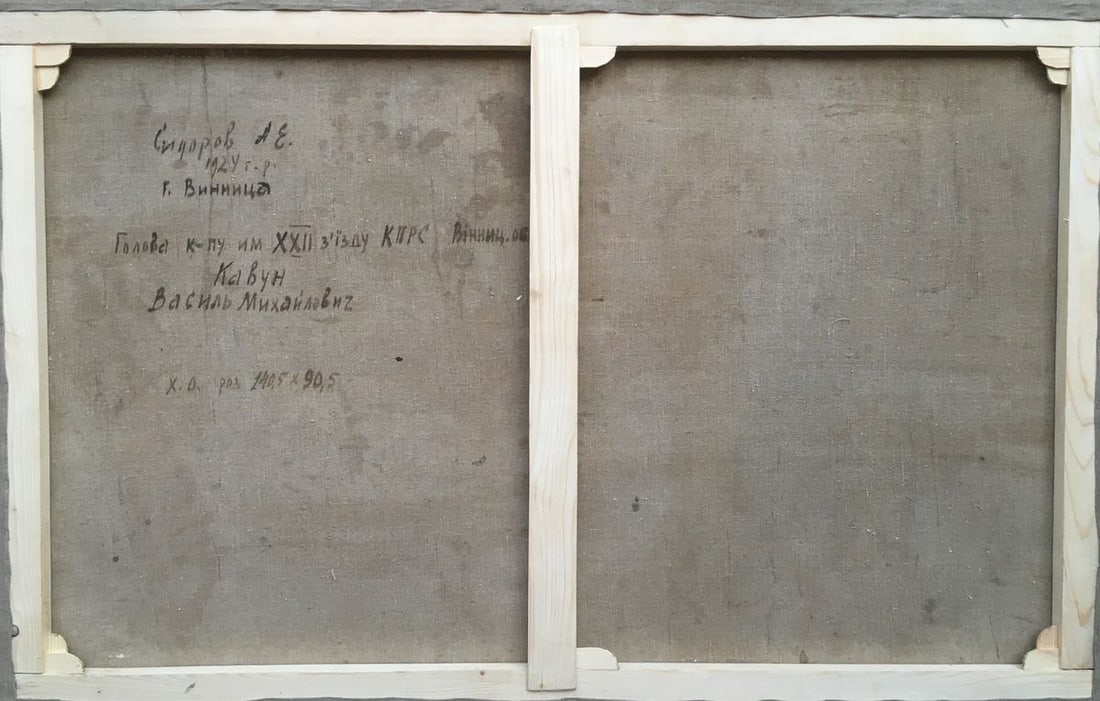 Сидоров А Е.
1924 г-р.
г. Винница
Голова к-пу им XXII з'їзду КПРС Вінниц. об
Кавун
Василь Михайлович
х. о. раз 140,5 х 90,5